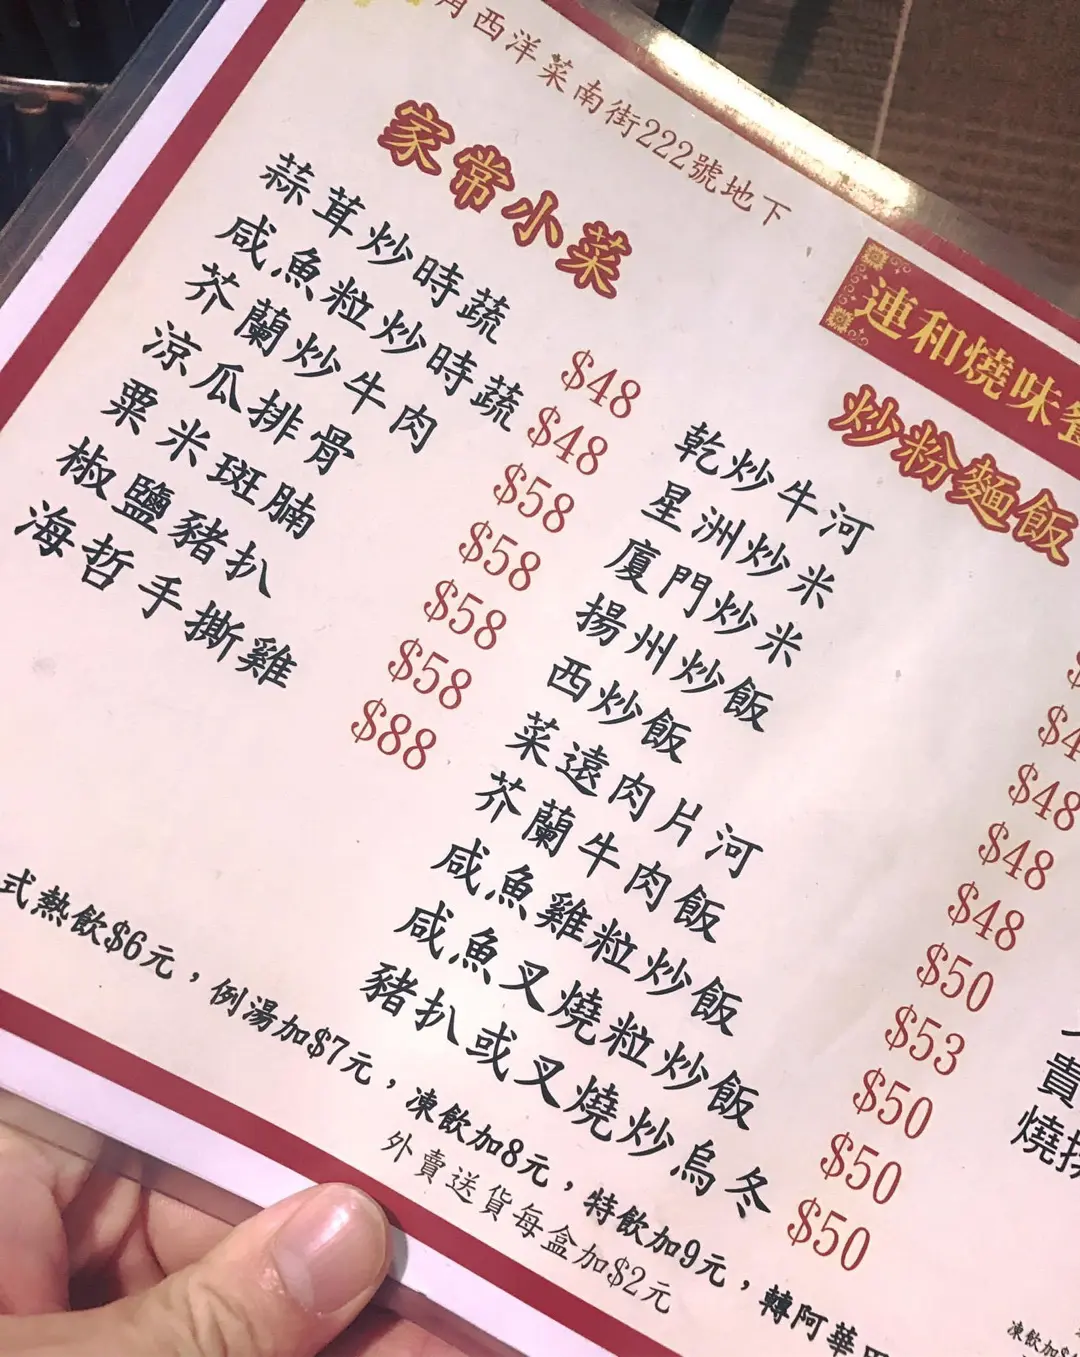 西洋菜南街222號地下
連和燒味
家常小菜
蒜茸炒時蔬 $48
咸魚粒炒時蔬 $48
芥蘭炒牛肉 $58
涼瓜排骨 $58
粟米斑腩 $58
椒鹽豬扒 $58
海哲手撕雞 $88
炒粉麵飯
乾炒牛河
星洲炒米
廈門炒米 $48
揚州炒飯 $48
西炒飯 $48
菜遠肉片河 $50
芥蘭牛肉飯 $53
咸魚雞粒炒飯 $50
咸魚叉燒粒炒飯 $50
豬扒或叉燒炒烏冬 $50
貴
燒
式熱飲$6元，例湯加$7元，凍飲加8元，特飲加9元，轉阿華
外賣送貨每盒加$2元
凍飲加